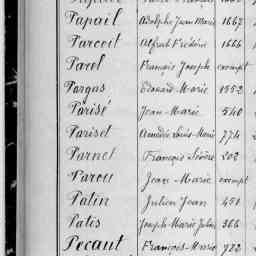 Papail Adolphe Jean Marie 1667
Parcoit Alfred Frédéric 1666
Parel François Joseph exempt
Pargas Edouard Marie 1552
Parisé Jean-Marie 540
Pariset Amédée Louis-Marie 774
Parnet François 202
Parou Jean-Marie exempt
Patin Julien Jean 450
Patis Joseph-Marie Julien 366
Pecaut François-Marie 722